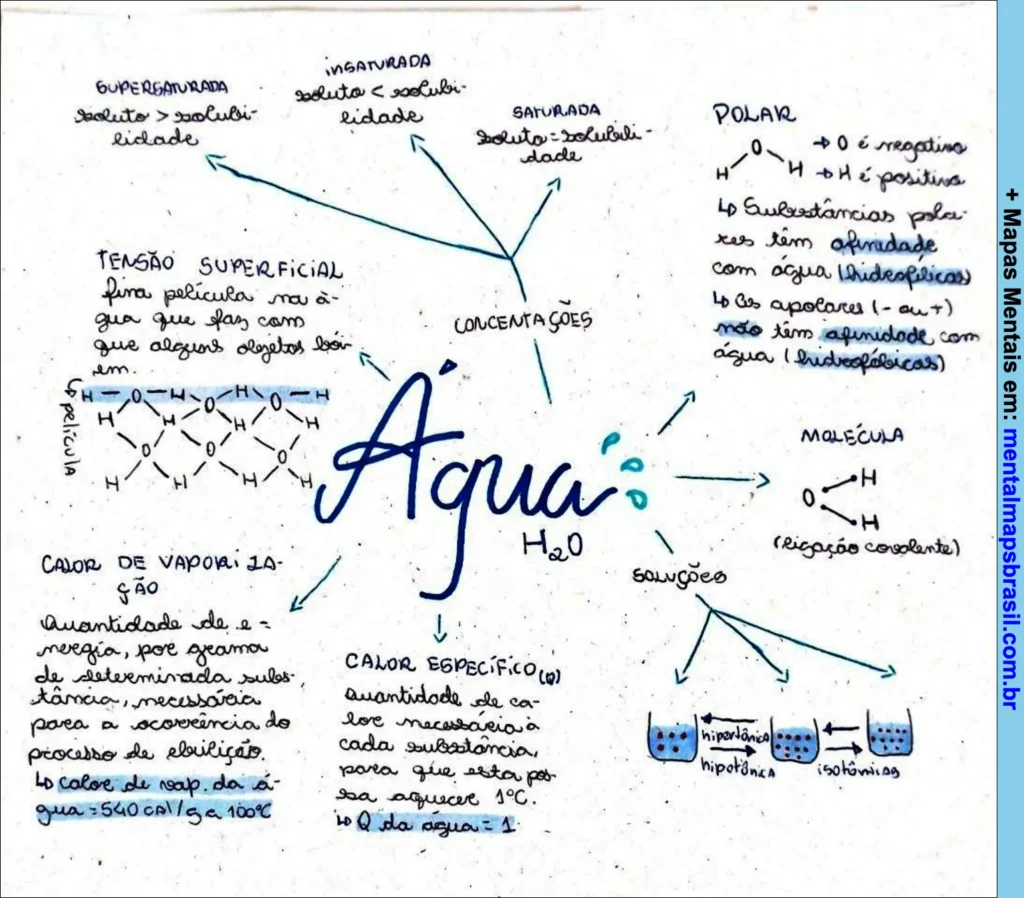 SUPERSATURADA
soluto > solubi-
lidade
INSATURADA
soluto < solubi-
lidade
SATURADA
soluto = solubili-
dade
CONCENTAÇÕES
POLAR
O
H H
→ O é negativo
→ H é positivo
↳ Substâncias pola-
res têm afinidade
com água (hidrofílicas)
↳ Os apolares (- ou +)
não têm afinidade com
água (hidrofóbicas)
TENSÃO SUPERFICIAL
fina película na á-
gua que faz com
que alguns objetos boi-
em.
película
H - O - H - O - H - O - H
H H H H
O O O
H H H H
Água
H₂O
MOLÉCULA
H
O
H
(ligação covalente)
SOLUÇÕES
hipertônica
hipotônica
isotônicas
CALOR DE VAPORIZA-
ÇÃO
Quantidade de e-
nergia, por grama
de determinada subs-
tância, necessária
para a ocorrência do
processo de ebulição.
↳ calor de vap. da á-
gua = 540 cal/g a 100°C
CALOR ESPECÍFICO (Q)
Quantidade de ca-
lor necessária à
cada substância,
para que esta pos-
sa aquecer 1°C.
↳ Q da água = 1
+ Mapas Mentais em: mentalmapsbrasil.com.br